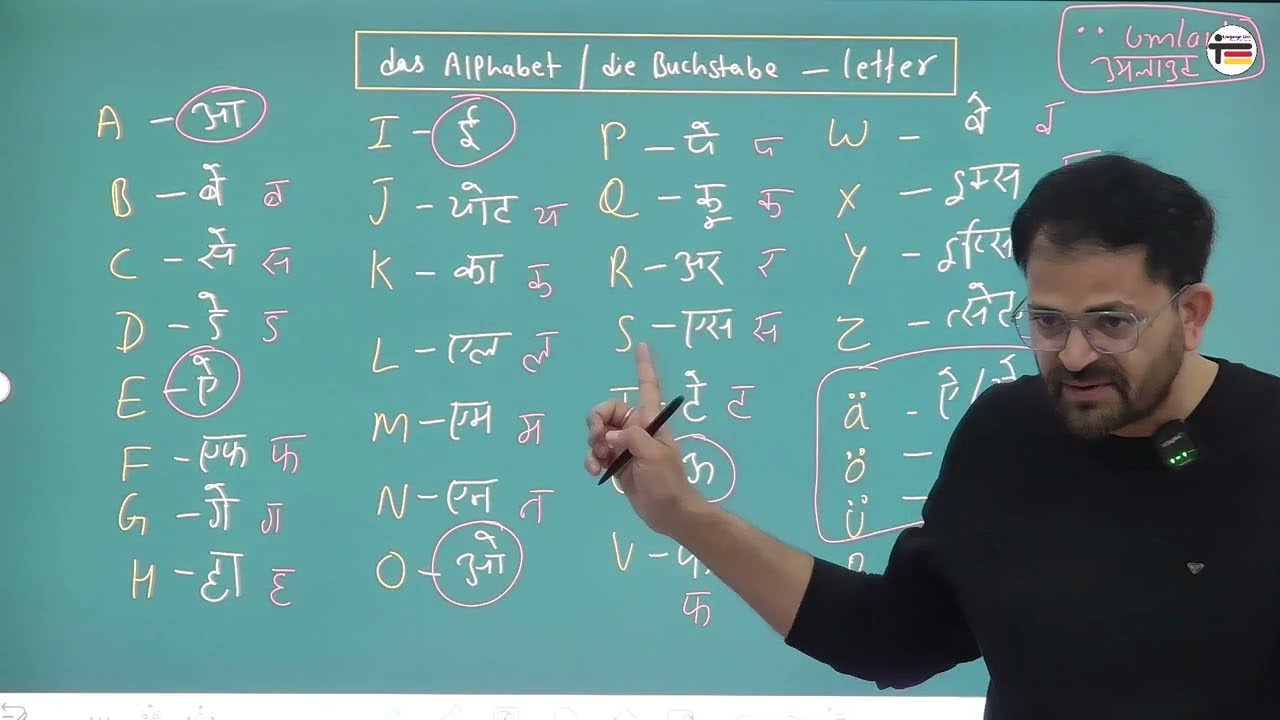 das Alphabet / die Buchstabe – letter
उमलाउट
A – आ
B – बे ब
C – से स
D – डे ड
E – ऐ
F – एफ फ
G – गे ग
H – हा ह
I – ई
J – योट य
K – का क
L – एल ल
M – एम म
N – एन न
O – ओ
P – पे प
Q – कू क
R – अर र
S – एस स
T – टे ट
ऊ
V –
फ
W – वे व
X – इक्स
Y –
Z –
ä – ऐ /
ö –
ü –